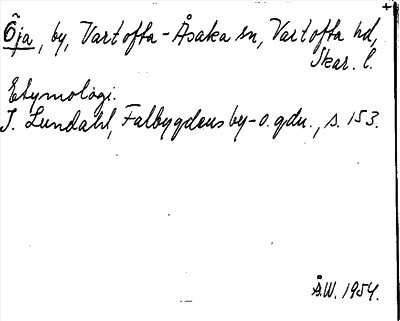 Öja, by, Vartofta-Åsaka sn, Vartofta hd,
Skar. l.
Etymologi.
I. Lundahl, Falbygdens by- o. gdn., s. 153.
Å.W. 1954.